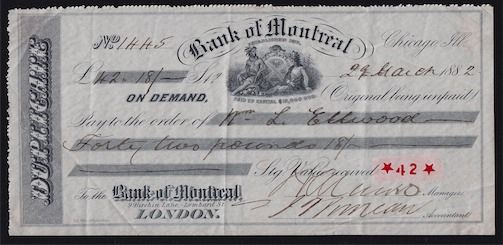 DUPLICATE
Bank of Montreal
ESTABLISHED 1817.
No 1445
Chicago Ill.
£42.18/— Stg
29 March 1882
PAID UP CAPITAL $12,000,000.
ON DEMAND,
(Original being unpaid)
Pay to the order of Wm L Ellwood
Forty two pounds 18/—
Stg Value received
*42*
To the Bank of Montreal, Manager
9 Birchin Lane, Lombard St.
LONDON.
Accountant